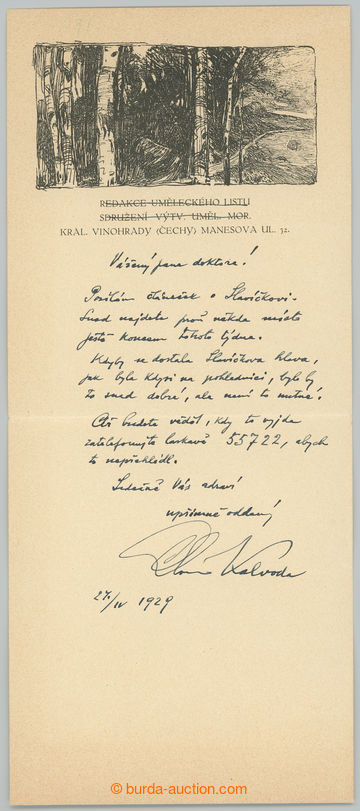 REDAKCE UMĚLECKÉHO LISTU
SDRUŽENÍ VÝTV. UMĚL. MOR.
KRÁL. VINOHRADY (ČECHY) MANESOVA UL. 32.
Vážený pane doktore!
Posílám článeček o Slavíčkovi.
Snad najdete proň někde místo
ještě koncem tohoto týdne.
Kdyby se dostala Slavíčkova hlava,
jak byla kdysi na pohlednici, bylo by
to snad dobré, ale není to nutné!
Až budete vědět, kdy to vyjde
zatelefonujte laskavě 55722, abych
to nepřehlédl.
Srdečně Vás zdraví
upřímně oddaný
Alois Kalvoda
27./IV 1929
© burda-auction.com